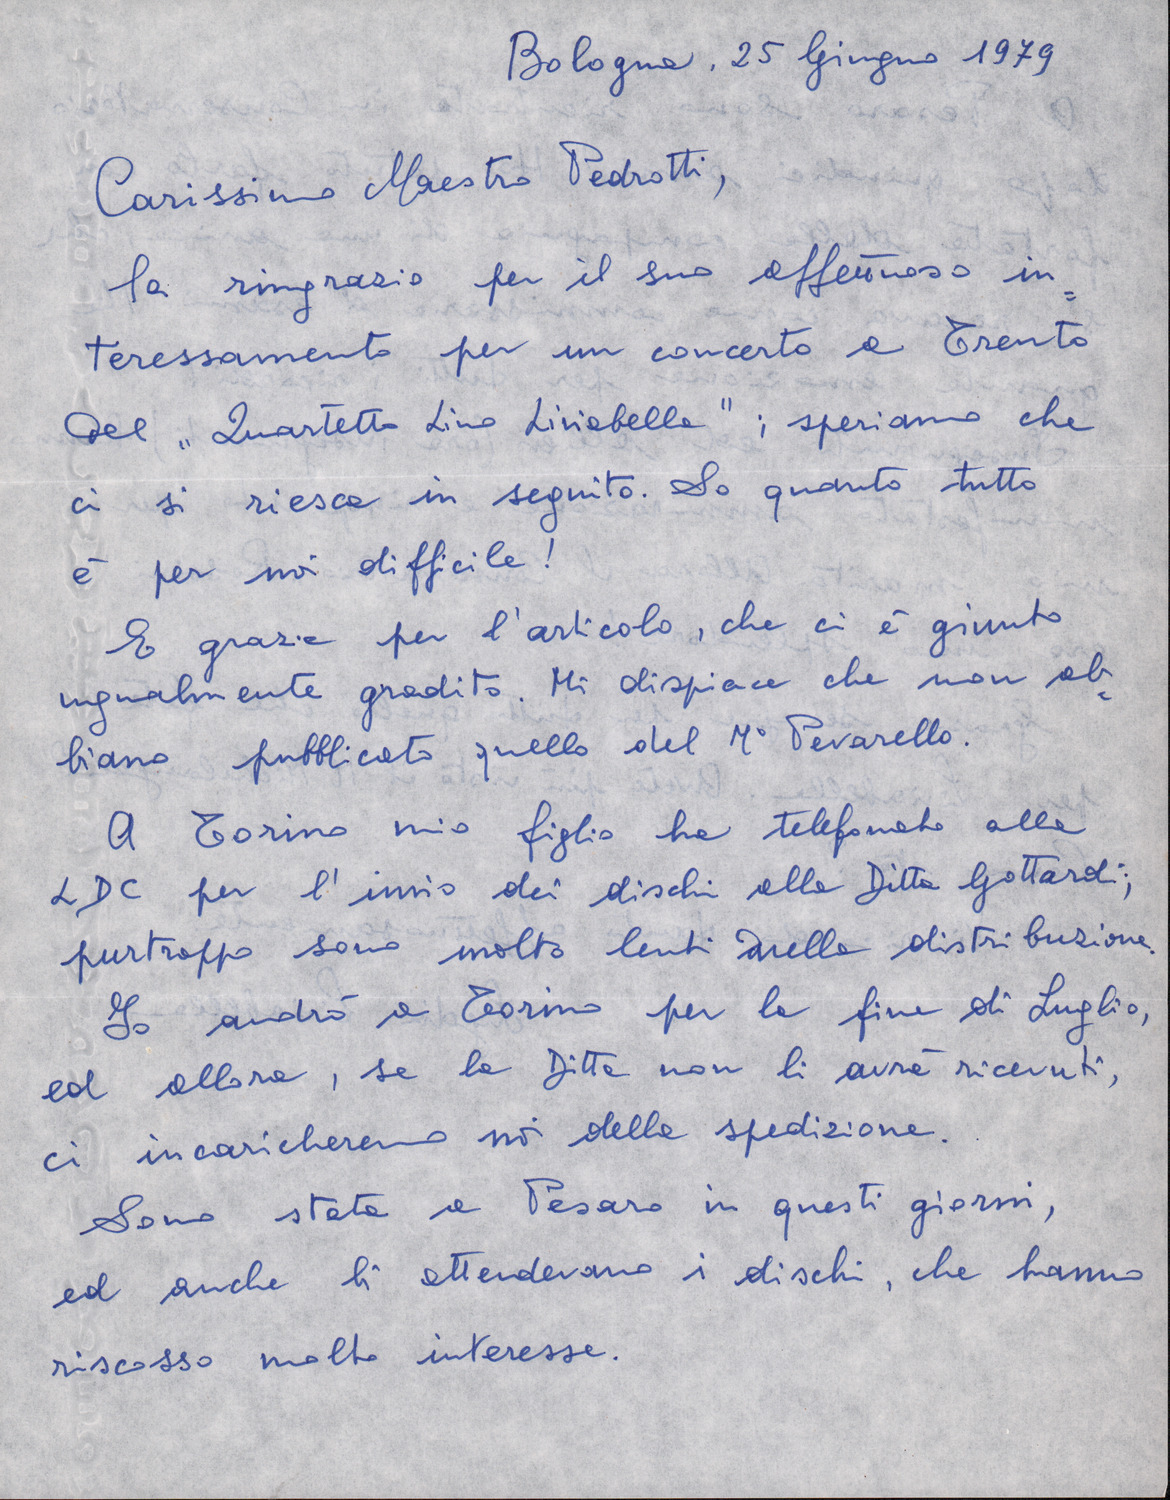 Bologna, 25 Giugno 1979
Carissimo Maestro Pedrotti,
la ringrazio per il suo affettuoso in=
teressamento per un concerto a Trento
del „Quartetto Lino Liviabella"; speriamo che
ci si riesca in seguito. So quanto tutto
è per noi difficile!
E grazie per l'articolo, che ci è giunto
ugualmente gradito. Mi dispiace che non ab=
biano pubblicato quello del M° Pevarello.
A Torino mio figlio ha telefonato alla
LDC per l'invio dei dischi alla Ditta Gottardi;
purtroppo sono molto lenti nella distribuzione.
Io andrò a Torino per la fine di Luglio,
ed allora, se la Ditta non li avrà ricevuti,
ci incaricheremo noi della spedizione.
Sono stata a Pesaro in questi giorni,
ed anche lì attendevano i dischi, che hanno
riscosso molto interesse.